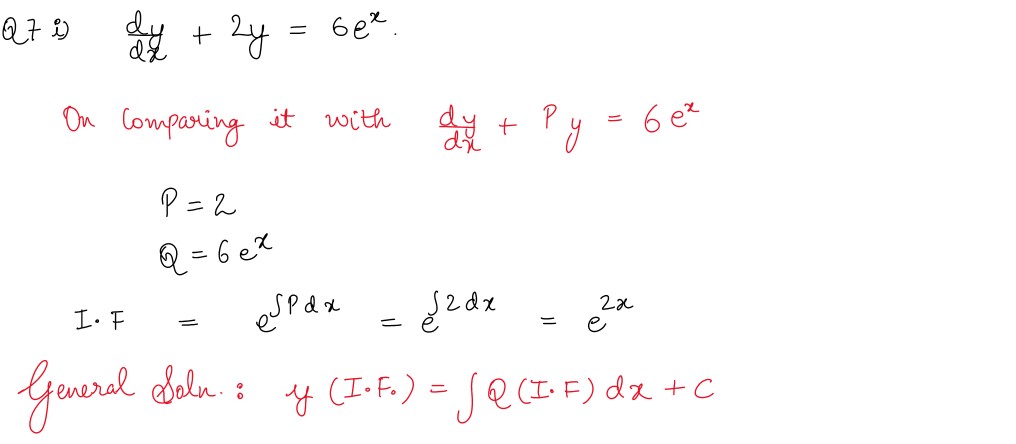 Q7 i) dy/dx + 2y = 6eˣ.
On Comparing it with dy/dx + Py = 6eˣ
P = 2
Q = 6eˣ
I.F = e^∫Pdx = e^∫2dx = e^2x
General Soln. : y (I.F.) = ∫Q (I.F) dx + C